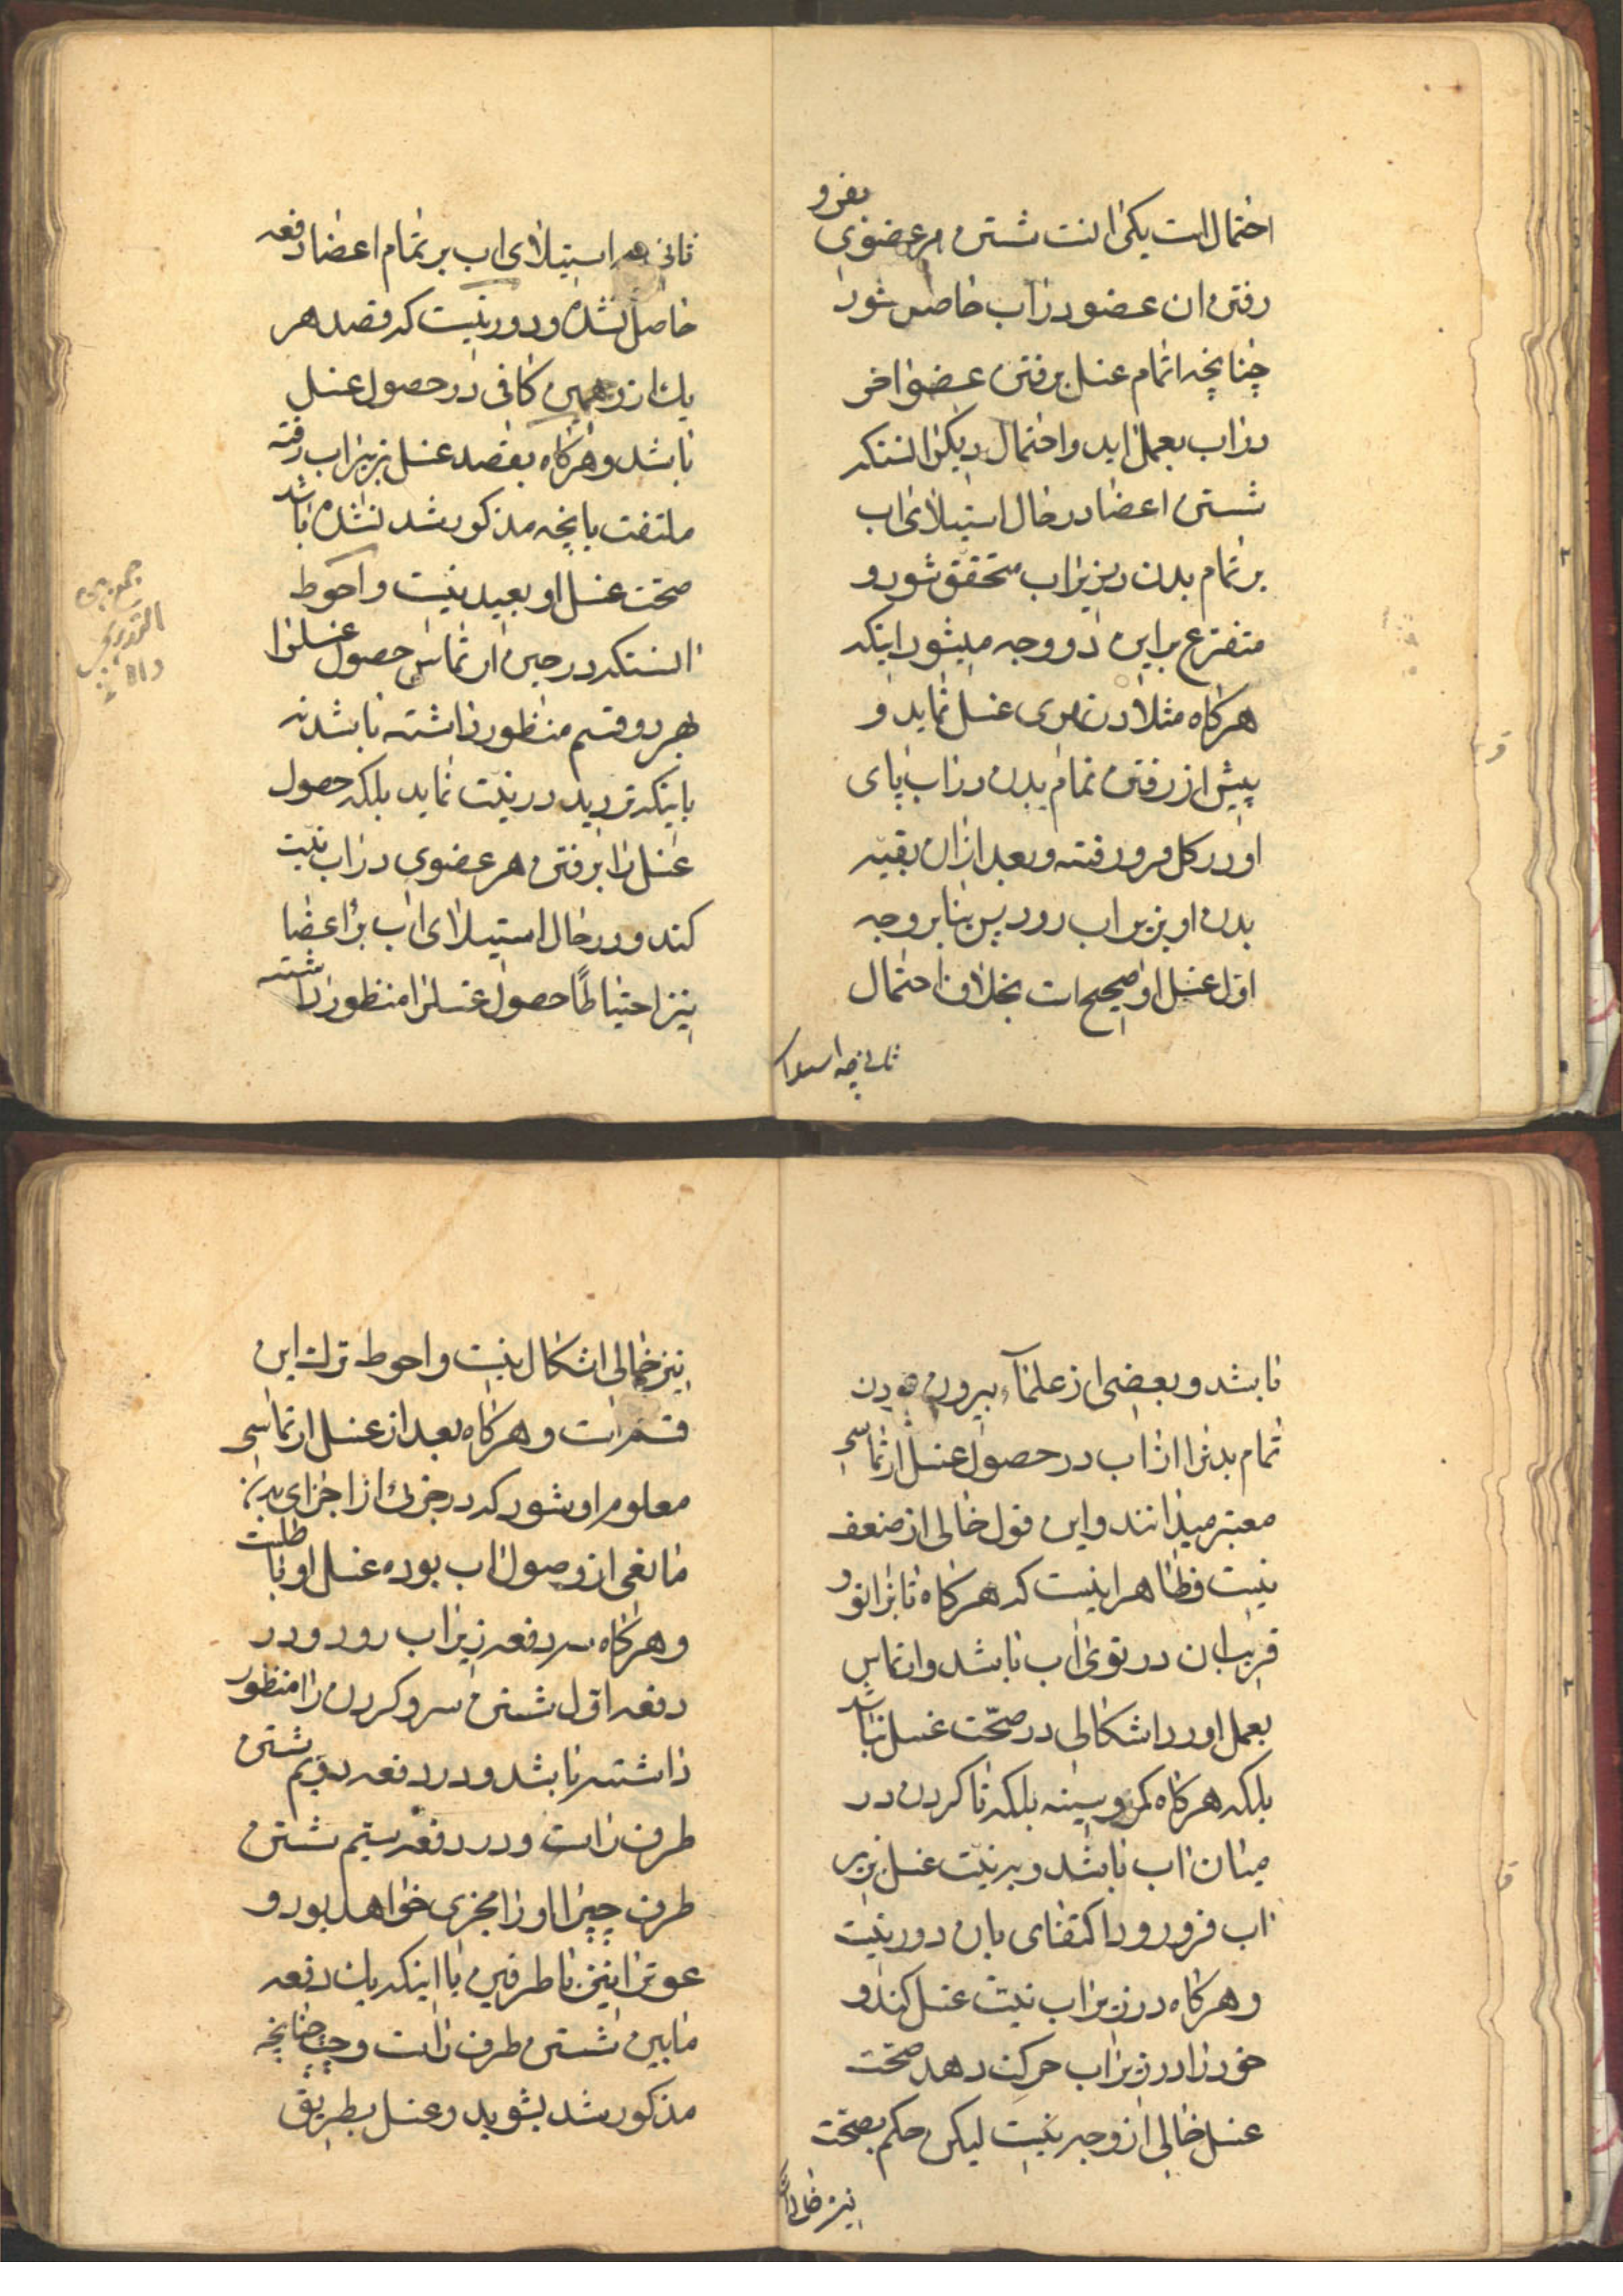 احتمال است یکی انست شستن هر عضوی بفرو
رفتن ان عضو در اب حاصل شود
چنانچه اتمام غسل برفتن عضو اخر
در اب بعمل اید و احتمال دیکر انستکه
شستن اعضا در حال استیلای اب
بر تمام بدن در زیر اب متحقق شود و
متفرع بر این دو وجه میشود اینکه
هرکاه مثلا در نهری غسل نماید و
پیش از رفتن تمام بدن در اب پای
او در کل فرو رفته و بعد ازان بقیه
بدن او بزیر اب رود پس بنابر وجه
اول غسل او صحیح است بخلاف احتمال
ثانی چه استیلای
ثانی چه استیلای اب بر تمام اعضا دفعه
حاصل نشده و دور نیست که قصد هر
یك از وجهین کافی در حصول غسل
باشد و هرکاه بقصد غسل بزیر اب رفته
ملتفت بانچه مذکور شد نشده باشد
صحت غسل او بعید نیست و احوط
انستکه در حین ارتماس حصول غسلرا
بهر دو قسم منظور داشته باشد نه
باینکه تردید در نیت نماید بلکه حصول
غسل را برفتن هر عضوی در اب نیت
کند و در حال استیلای اب بر اعضا
نیز احتیاطا حصول غسلرا منظور داشته
باشد و بعضی از علمآء بیرون بودن
تمام بدنرا از اب در حصول غسل ارتماسی
معتبر میدانند و این قول خالی از ضعف
نیست و ظاهر اینست که هرکاه تا زانو و
قریب بان در توی اب باشد و ارتماس
بعمل اورد اشکالی در صحت غسل نباشد
بلکه هرکاه کمر و سینه بلکه تا کردن در
میان اب باشد و به نیت غسل بزیر
اب فرو رود اکتفای بان دور نیست
و هرکاه در زیر اب نیت غسل کند و
خود را در زیر اب حرکت دهد صحت
غسل خالی از وجه نیست لیکن حکم بصحت
نیز خالی از
نیز خالی اشکال نیست و احوط ترك این
قسم است و هرکاه بعد از غسل ارتماسی
معلوم او شود که در جزئی از اجزای بدنش
مانعی از وصول اب بوده غسل او باطلست
و هرکاه سه دفعه زیر اب رود و در
دفعه اول شستن سر و کردن را منظور
داشته باشد و در دفعه دویم شستن
طرف راست و در دفعه سیم شستن
طرف چپرا او را مجزی خواهد بود و
عورترا نیز با طرفین یا اینکه یك دفعه
مابین شستن طرف راست و چپ چنانچه
مذکور شد بشوید و غسل بطریق